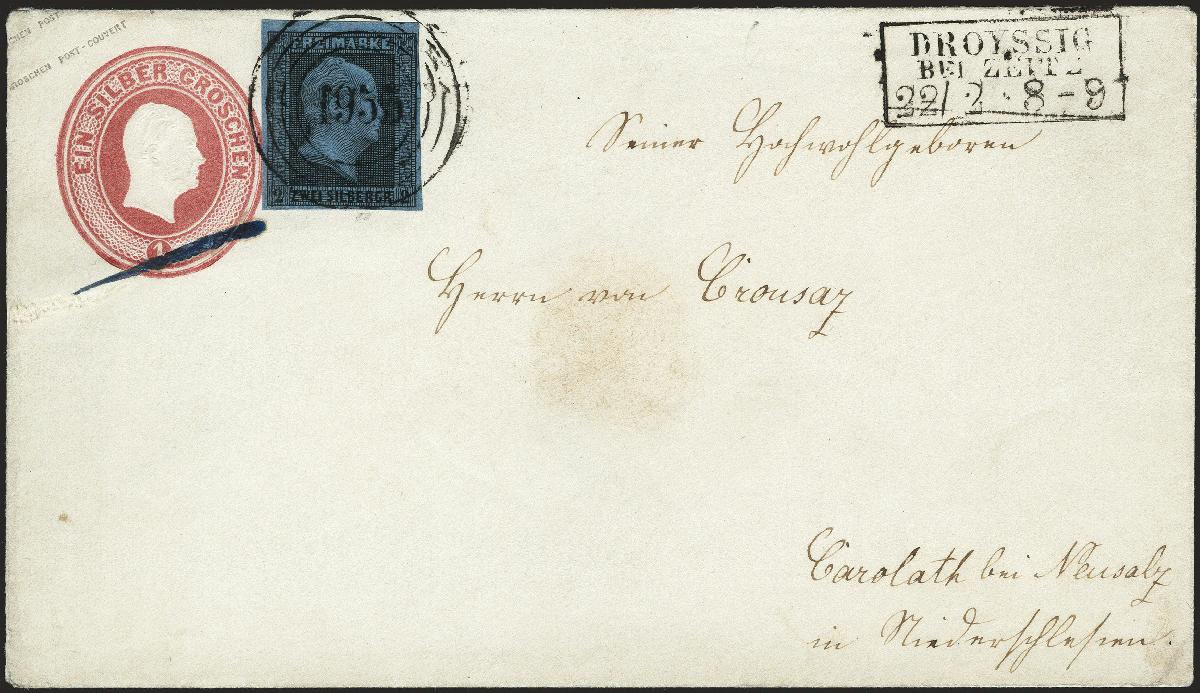 POST-COUVERT
EIN SILBER GROSCHEN
1
FREIMARKE
195
2 ZWEI SILBERGR. 2
DROYSSIG
BEI ZEITZ
22/2 · 8-9
Seiner Hochwohlgeboren
Herrn von Crousaz
Carolath bei Neusalz
in Niederschlesien.